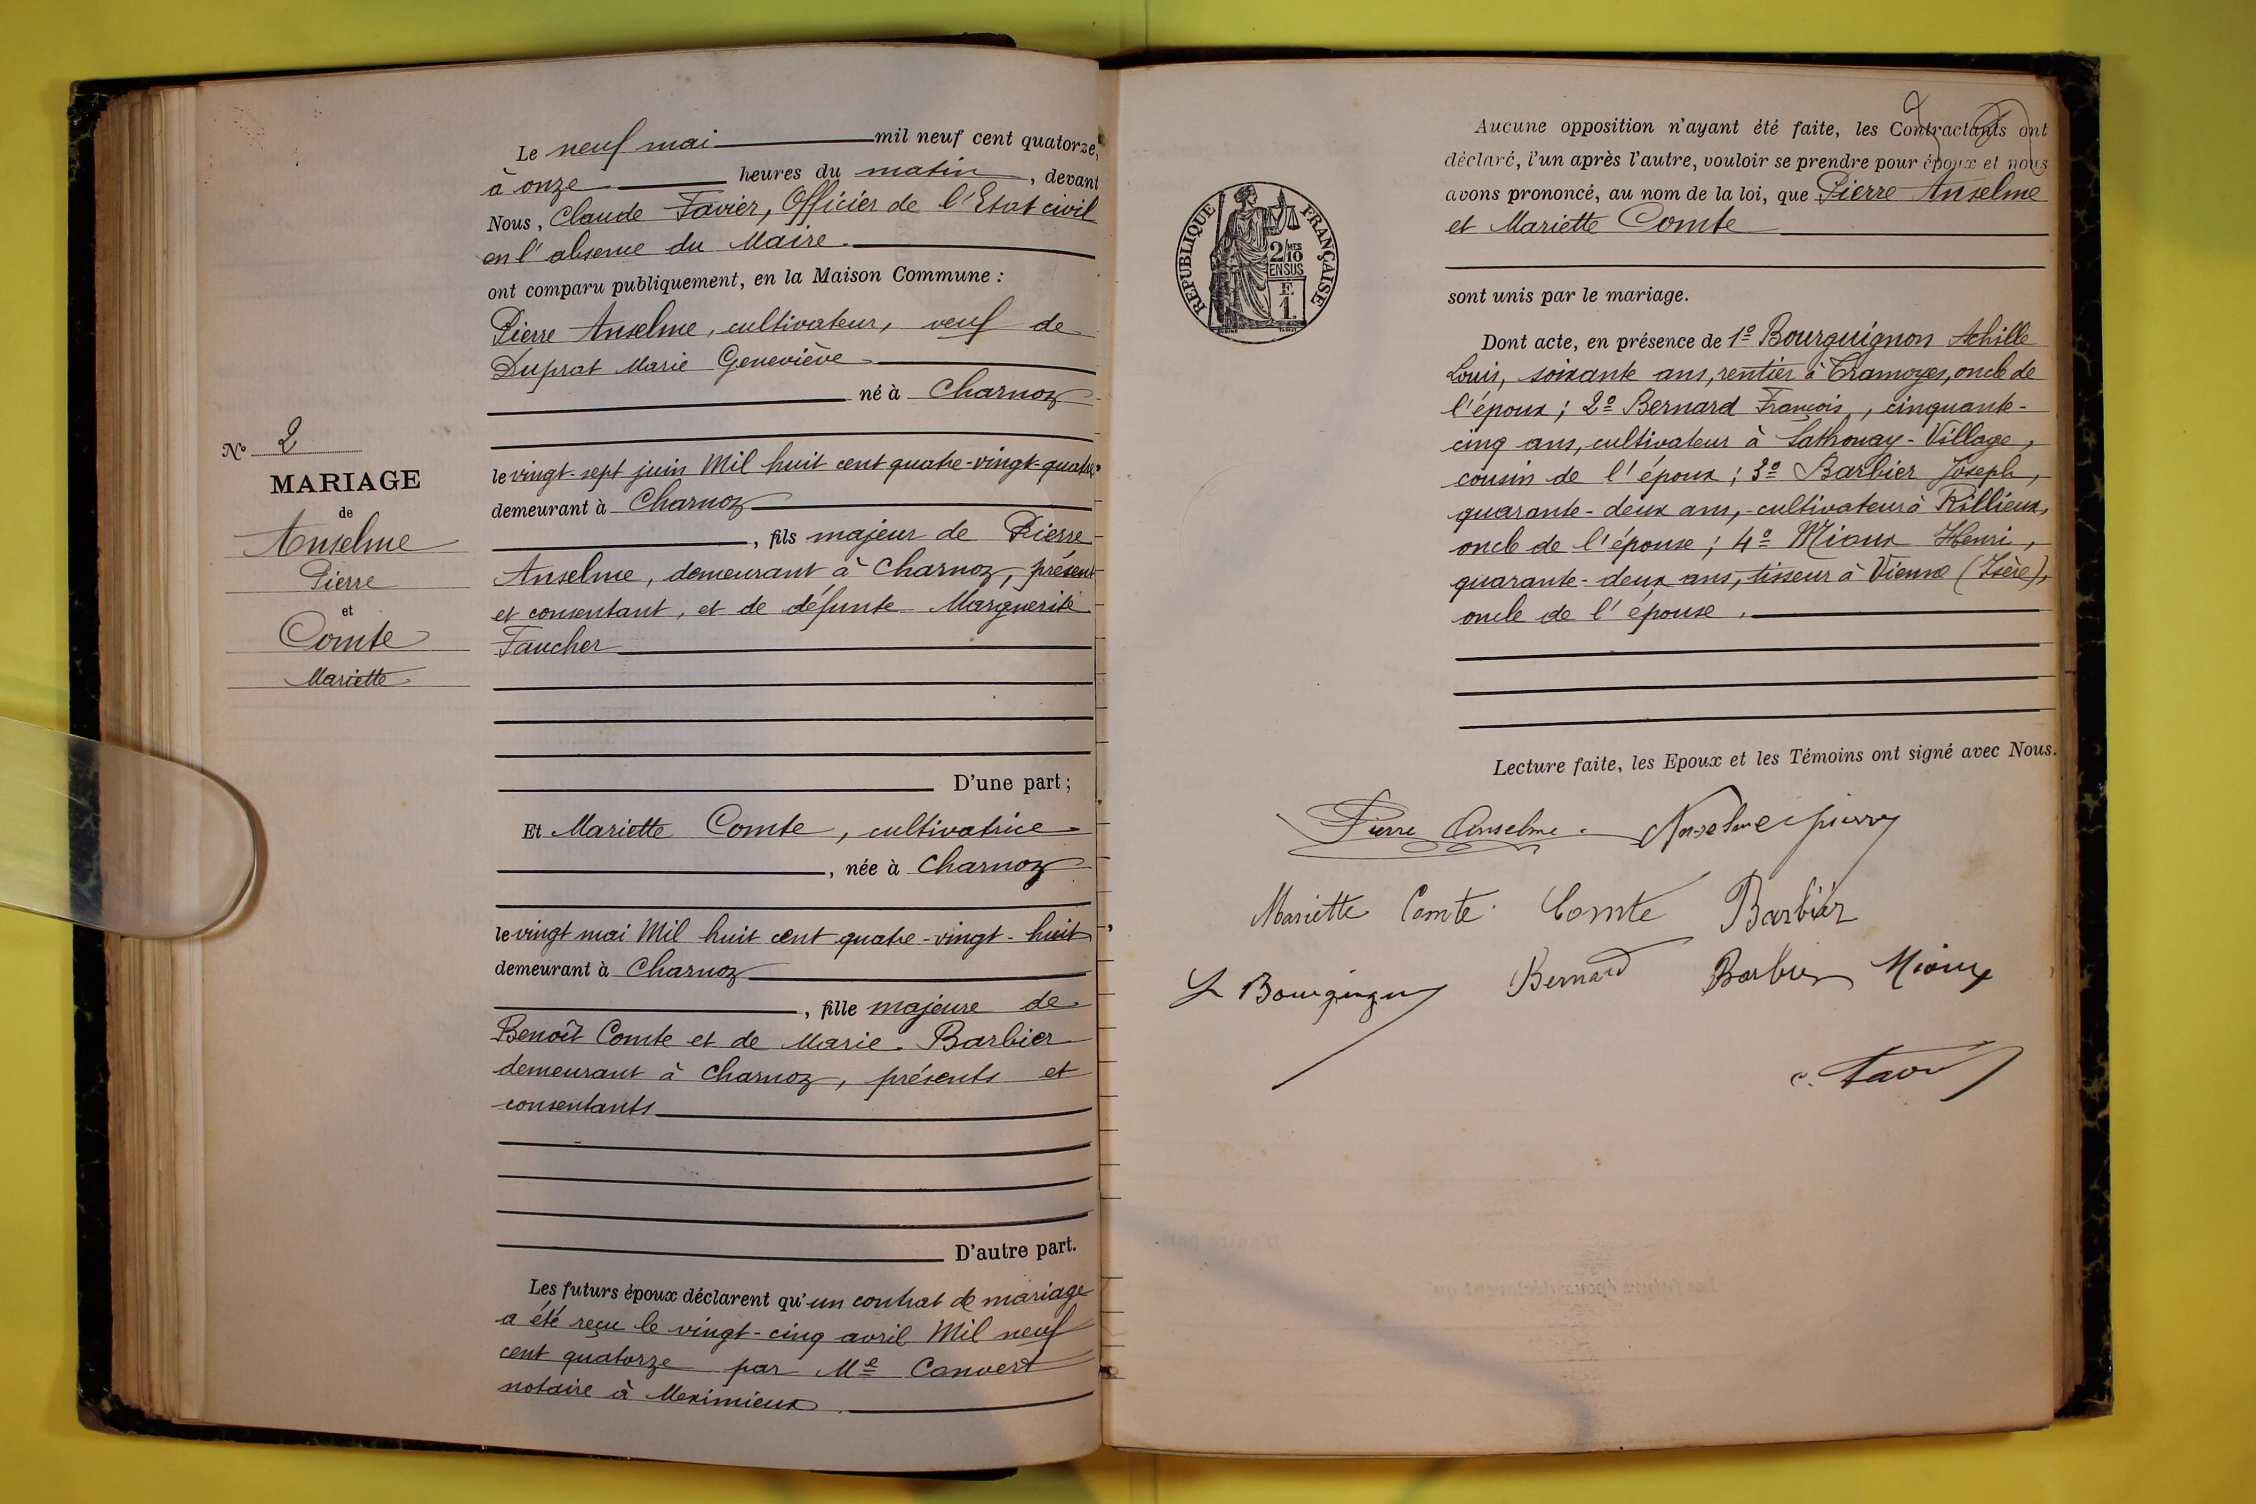 N° 2
MARIAGE
de
Anselme
Pierre
et
Comte
Mariette
Le neuf mai mil neuf cent quatorze,
à onze heures du matin, devant
Nous, Claude Favier, Officier de l'Etat civil
en l'absence du Maire.
ont comparu publiquement, en la Maison Commune :
Pierre Anselme, cultivateur, veuf de
Duprat Marie Geneviève
né à Charnoz
le vingt-sept juin Mil huit cent quatre-vingt-quatre
demeurant à Charnoz
, fils majeur de Pierre
Anselme, demeurant à Charnoz, présent
et consentant, et de défunte Marguerite
Faucher
D'une part ;
Et Mariette Comte, cultivatrice
, née à Charnoz
le vingt mai Mil huit cent quatre-vingt-huit,
demeurant à Charnoz
, fille majeure de
Benoît Comte et de Marie Barbier
demeurant à Charnoz, présents et
consentants
D'autre part.
Les futurs époux déclarent qu'un contrat de mariage
a été reçu le vingt-cinq avril Mil neuf
cent quatorze par Me Convert
notaire à Meximieux.
REPUBLIQUE FRANÇAISE
2/10 MES
EN SUS
F.
1.
Aucune opposition n'ayant été faite, les Contractants ont
déclaré, l'un après l'autre, vouloir se prendre pour époux et nous
avons prononcé, au nom de la loi, que Pierre Anselme
et Mariette Comte
sont unis par le mariage.
Dont acte, en présence de 1° Bourguignon Achille
Louis, soixante ans, rentier à Tramoyes, oncle de
l'époux ; 2° Bernard François, cinquante-
cinq ans, cultivateur à Sathonay-Village,
cousin de l'époux ; 3° Barbier Joseph,
quarante-deux ans, cultivateur à Rillieux,
oncle de l'épouse ; 4° Mioux Henri,
quarante-deux ans, tisseur à Vienne (Isère),
oncle de l'épouse.
Lecture faite, les Epoux et les Témoins ont signé avec Nous.
Pierre Anselme.
Mariette Comte. Comte Barbier
Bernard Barbier Mioux